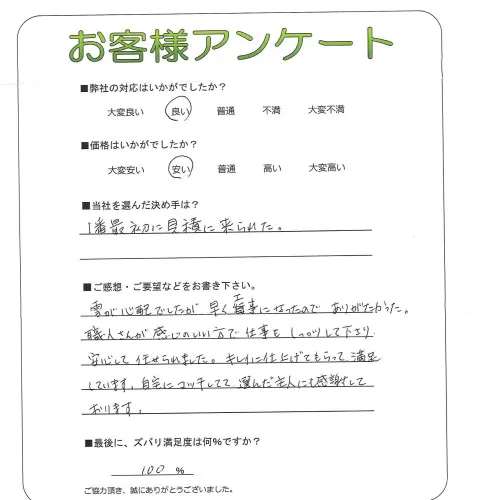 お客様アンケート
■弊社の対応はいかがでしたか？
大変良い 良い 普通 不満 大変不満
■価格はいかがでしたか？
大変安い 安い 普通 高い 大変高い
■当社を選んだ決め手は？
1番最初に見積に来られた。
■ご感想・ご要望などをお書き下さい。
雪が心配でしたが早く工事になったのでありがたかった。
職人さんが感じのいい方で仕事をしっかりして下さり
安心して任せられました。キレイに仕上げてもらって満足
しています。自宅にマッチしてて選んだ主人にも感謝して
おります。
■最後に、ズバリ満足度は何％ですか？
100 %
ご協力頂き、誠にありがとうございました。